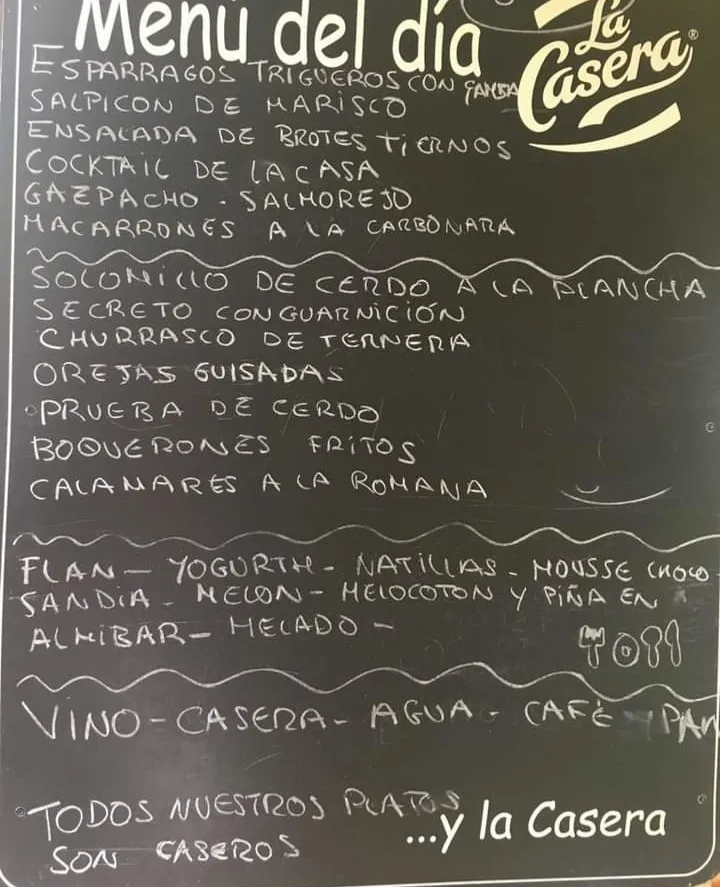 Menú del día
La Casera®
ESPARRAGOS TRIGUEROS CON GAMBA
SALPICON DE MARISCO
ENSALADA DE BROTES TIERNOS
COCKTAIL DE LA CASA
GAZPACHO - SALMOREJO
MACARRONES A LA CARBONARA
SOLOMILLO DE CERDO A LA PLANCHA
SECRETO CON GUARNICIÓN
CHURRASCO DE TERNERA
OREJAS GUISADAS
PRUEBA DE CERDO
BOQUERONES FRITOS
CALAMARES A LA ROMANA
FLAN - YOGURTH - NATILLAS - MOUSSE CHOCO
SANDIA - MELON - MELOCOTON Y PIÑA EN
ALMIBAR - HELADO -
VINO - CASERA - AGUA - CAFÉ Y PAN
TODOS NUESTROS PLATOS
SON CASEROS
...y la Casera